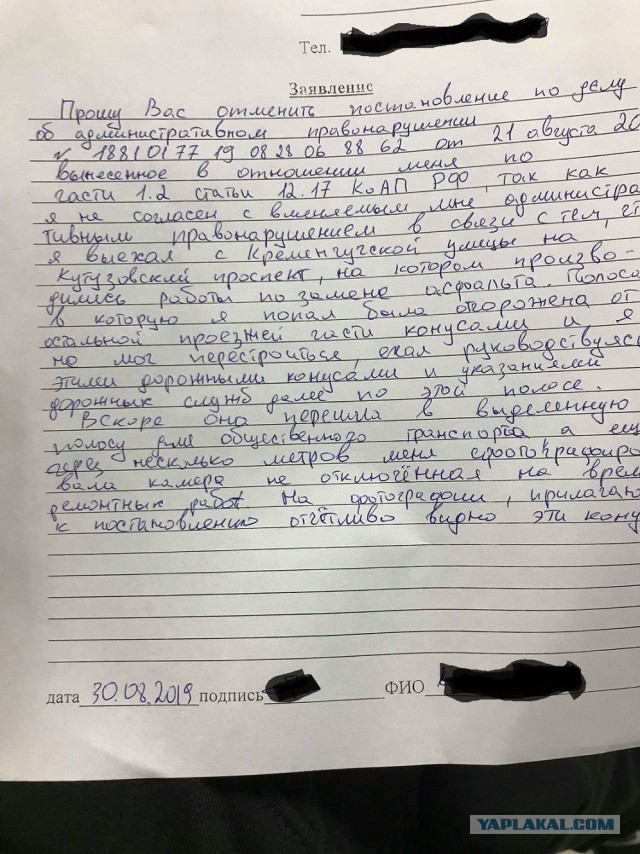 Тел.
Заявление
Прошу Вас отменить постановление по делу
об административном правонарушении
№ 18810177190828068862 от 21 августа 20
вынесенное в отношении меня по
части 1.2 статьи 12.17 КоАП РФ, так как
я не согласен с вменяемым мне администра
тивным правонарушением в связи с тем, чт
я выехал с Кременчугской улицы на
Кутузовский проспект, на котором произво-
дились работы по замене асфальта. Полоса
в которую я попал была отгорожена от
остальной проезжей части конусами и я
не мог перестроиться, ехал руководствуясь
этими дорожными конусами и указаниями
дорожных служб далее по этой полосе.
Вскоре она перешла в выделенную
полосу для общественного транспорта а ещ
через несколько метров меня сфотографиро
вала камера не отключённая на врем
ремонтных работ. На фотографии, прилагаю
к постановлению отчётливо видно эти кону
дата 30.08.2019 подпись ФИО
YAPLAKAL.COM